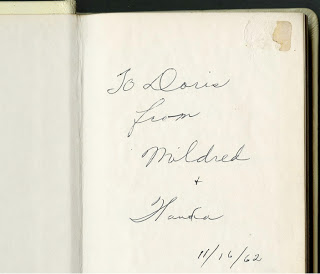 To Doris
from
Mildred
+
11/16/62